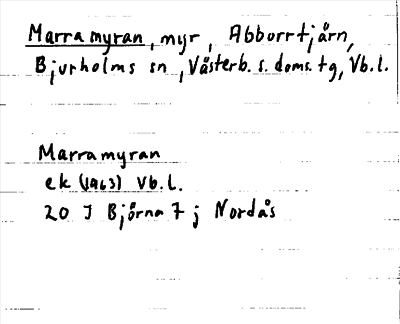 Marramyran, myr, Abborrtjärn,
Bjurholms sn, Västerb. s. doms. tg, Vb. l.
Marramyran
ek (1963) Vb. l.
20 J Björna 7 j Nordås